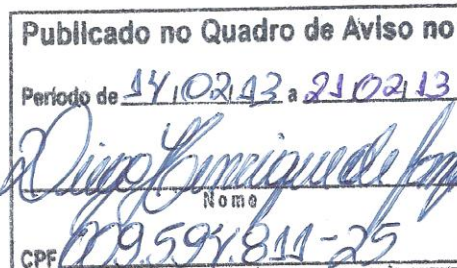 Publicado no Quadro de Aviso no
Período de 14.02.13 a 21.02.13
Diego Henrique de
Nome
CPF 009.594.811-25